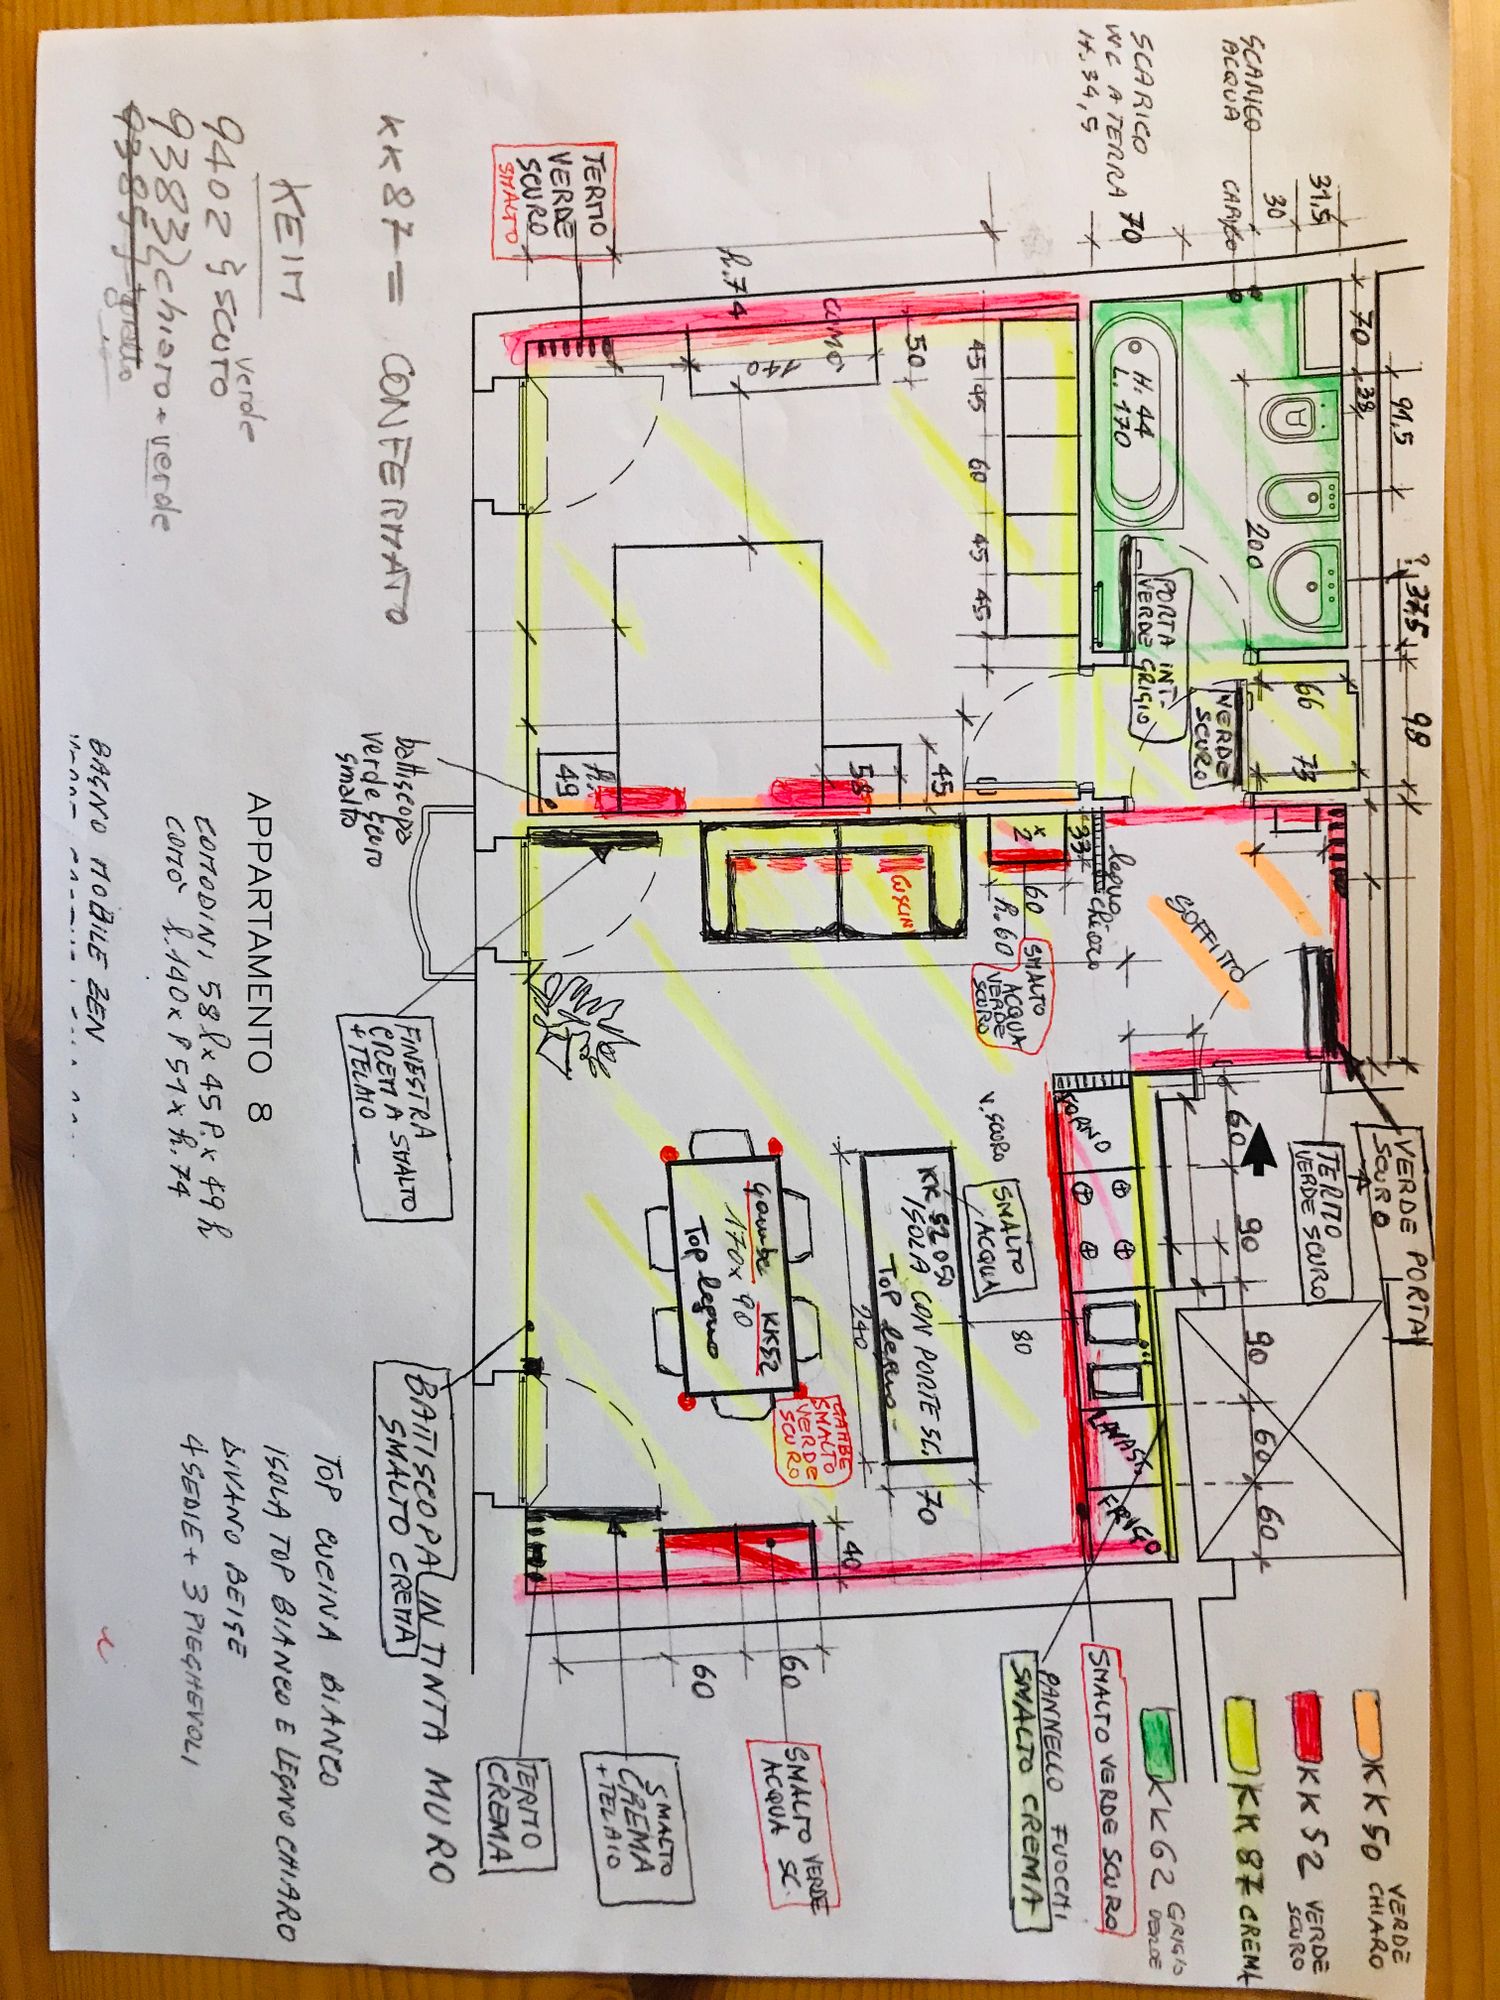 SCARICO
ACQUA
SCARICO
WC A TERRA
H. 34,5
70
30
31,5
70
38
91,5
? 37,5
98
KK50 VERDE
CHIARO
KK52 VERDE
SCURO
KK 87 CREMA
KK62 GRIGIO
VERDE
H. 44
L. 170
200
66
73
PORTA INT-
VERDE GRIGIO
VERDE
SCURO
VERDE PORTA
SCURO
TERMO
VERDE SCURO
SOFFITTO
legno chiaro
TERMO
VERDE
SCURO
SMALTO
h. 74
COMO'
140
50
45
45
60
45
45
49
58
45
x2
33
60
h. 60
SMALTO
ACQUA
VERDE
SCURO
CUSCINI
60
90
90
60
60
FORNO
FRIGO
V. SCURO
SMALTO
ACQUA
80
KK 52 050
ISOLA CON PORTE SC.
TOP legno
240
70
gambe KK52
170x90
Top legno
GAMBE
SMALTO
VERDE
SCURO
40
60
60
SMALTO VERDE SCURO
PANNELLO FUOCHI
SMALTO CREMA
SMALTO VERDE
ACQUA SC.
SMALTO
CREMA
+TELAIO
TERMO
CREMA
KK87 = CONFERMATO
KEIM
9402 } scuro verde
9383 } chiaro + verde
battiscopa
verde scuro
smalto
FINESTRA
CREMA SMALTO
+ TELAIO
BATTISCOPA IN TINTA MURO
SMALTO CREMA
APPARTAMENTO 8
COMODINI 58 l x 45 P. x 49 h
COMO' l. 140 x P 51 x h. 74
BAGNO MOBILE ZEN
TOP CUCINA BIANCO
ISOLA TOP BIANCO E LEGNO CHIARO
DIVANO BEIGE
4 SEDIE + 3 PIEGHEVOLI